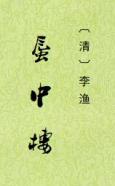 〔清〕李渔
蜃中楼